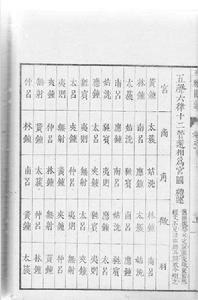 五聲六律十二管還相爲宮圖 禮運
宮 商 角 徵 羽
黃鍾 太蔟 姑洗 林鍾 南呂
林鍾 南呂 應鍾 太蔟 姑洗
太蔟 姑洗 蕤賓 南呂 應鍾
南呂 應鍾 大呂 姑洗 蕤賓
姑洗 蕤賓 夷則 應鍾 大呂
應鍾 大呂 夾鍾 蕤賓 夷則
蕤賓 夷則 無射 大呂 夾鍾
大呂 夾鍾 仲呂 夷則 無射
夷則 無射 黃鍾 夾鍾 仲呂
夾鍾 仲呂 林鍾 無射 黃鍾
無射 黃鍾 太蔟 仲呂 林鍾
仲呂 林鍾 南呂 黃鍾 太蔟